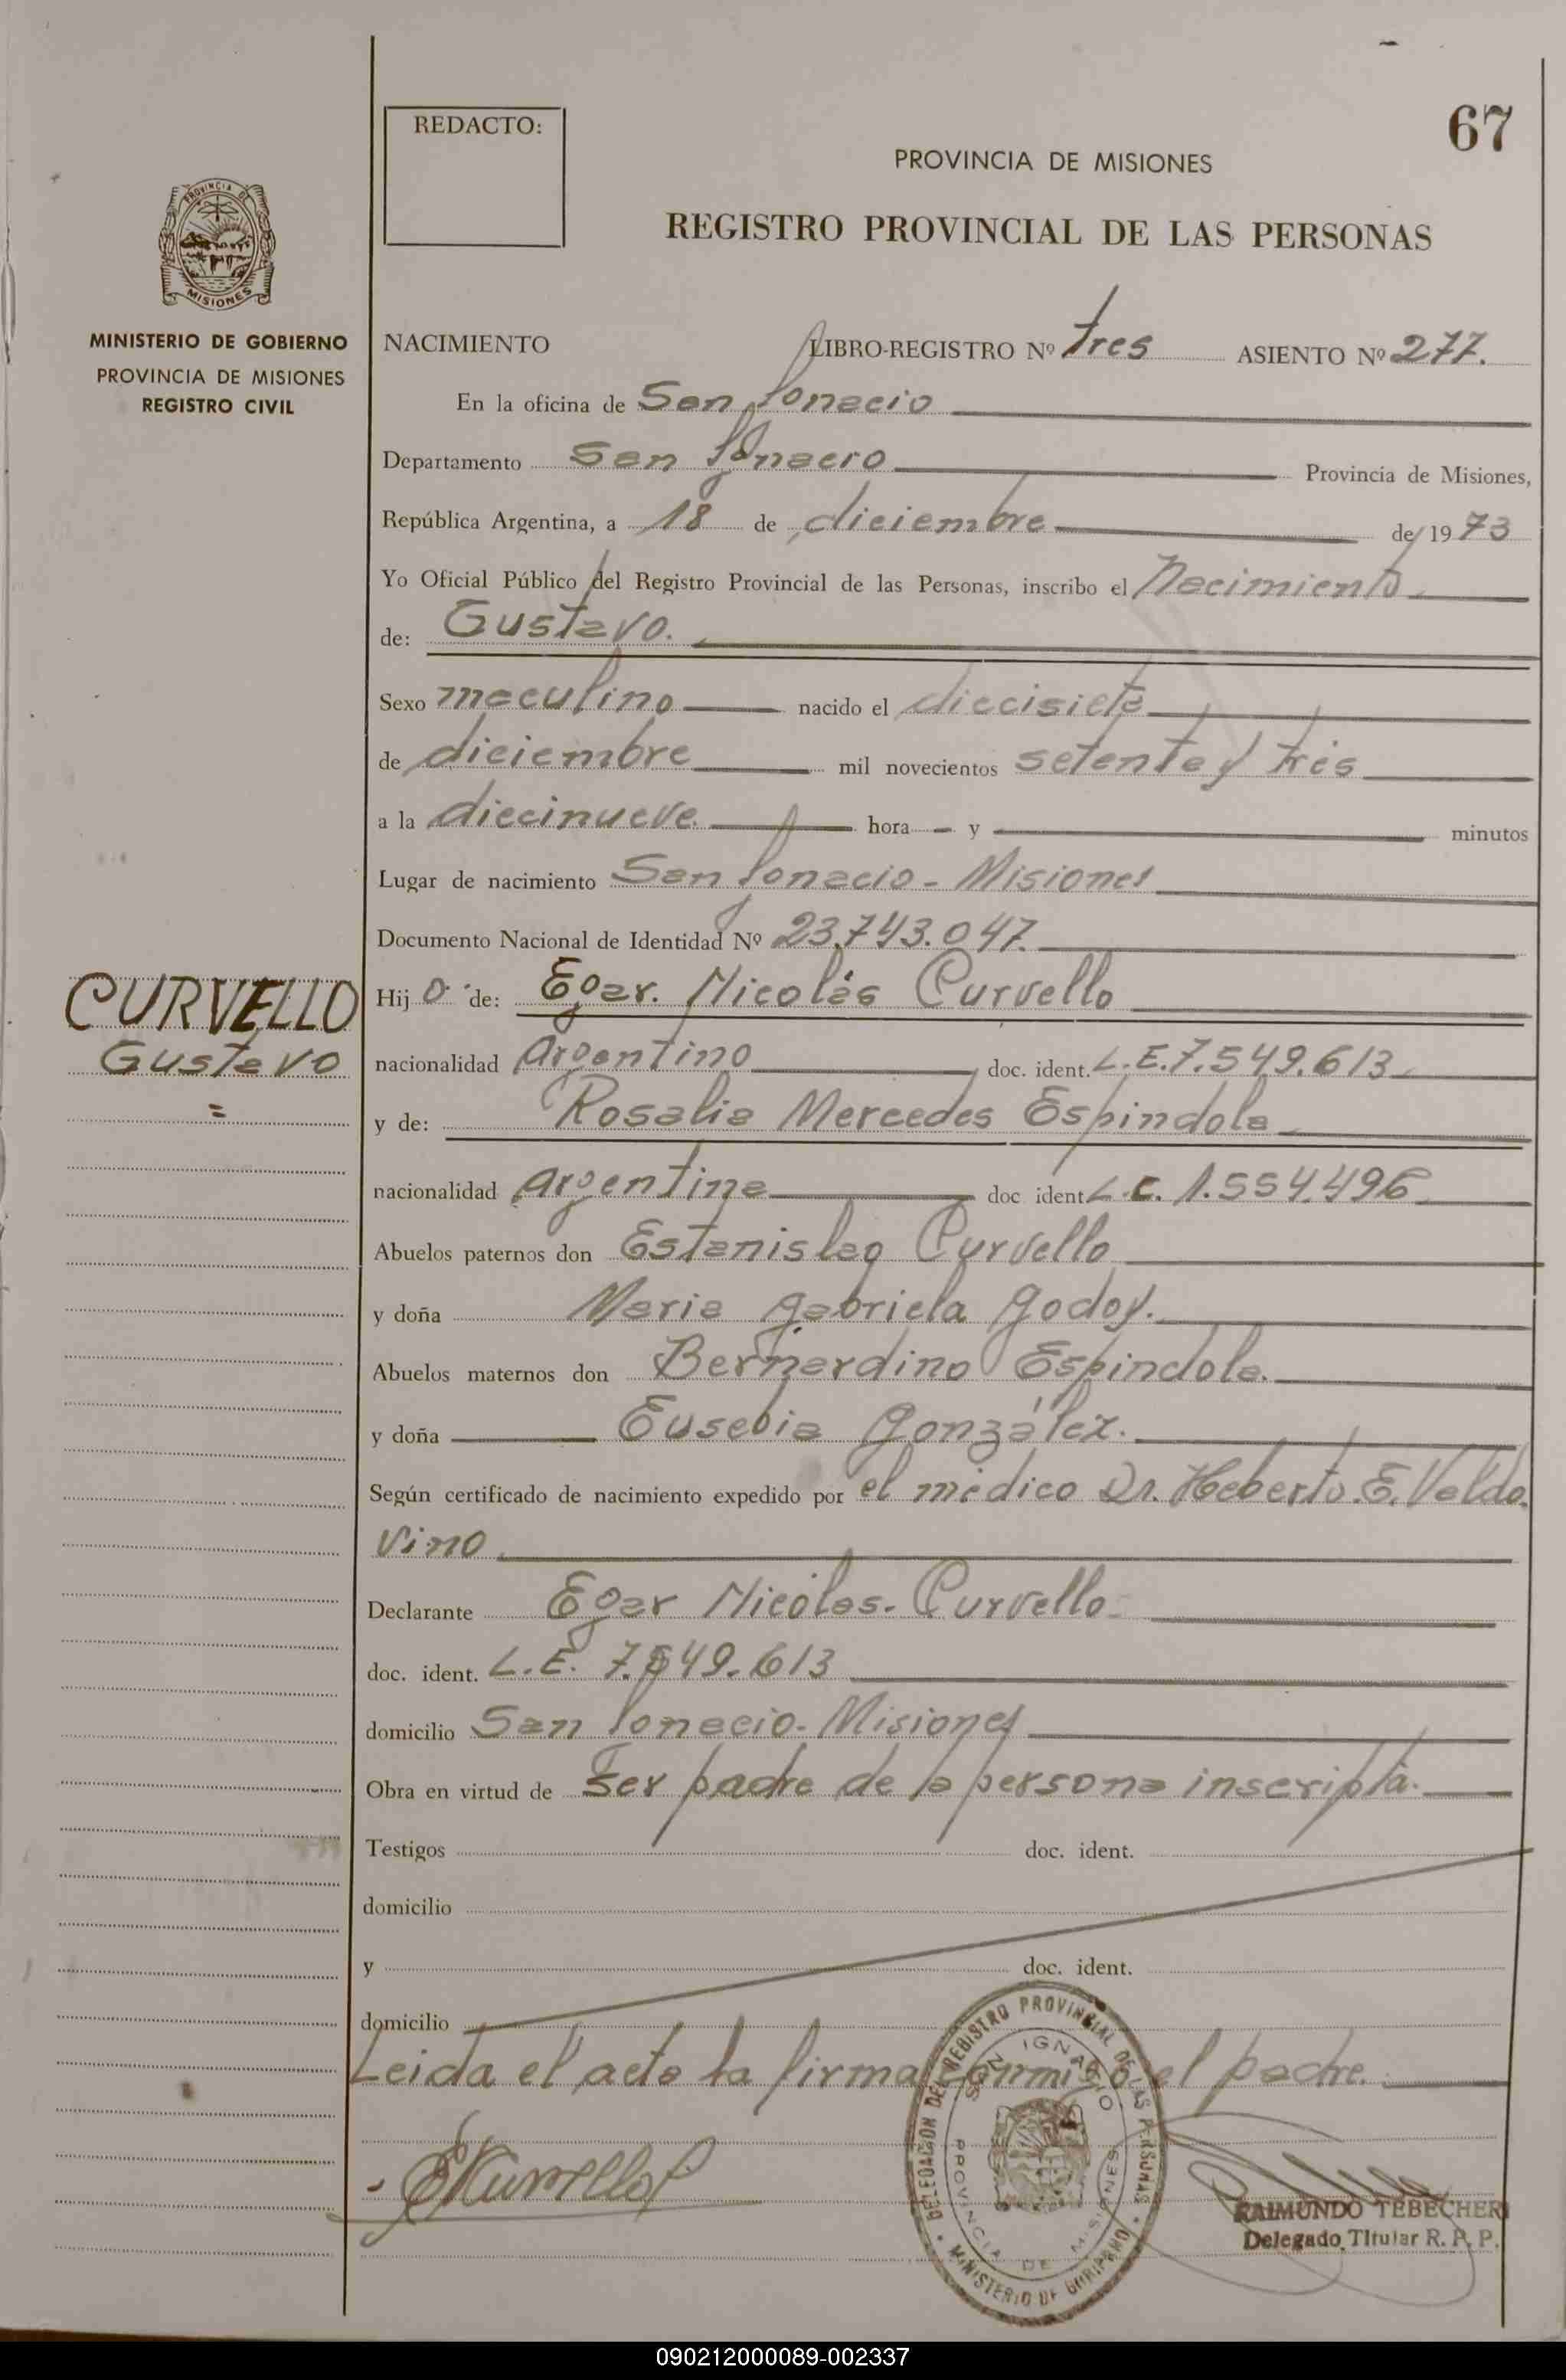 REDACTO:
67
PROVINCIA DE MISIONES
REGISTRO PROVINCIAL DE LAS PERSONAS
PROVINCIA DE
MISIONES
MINISTERIO DE GOBIERNO
PROVINCIA DE MISIONES
REGISTRO CIVIL
NACIMIENTO LIBRO-REGISTRO Nº tres ASIENTO Nº 277.
En la oficina de San Ignacio
Departamento San Ignacio Provincia de Misiones,
República Argentina, a 18 de diciembre de 1973
Yo Oficial Público del Registro Provincial de las Personas, inscribo el Nacimiento
de: Gustavo.
Sexo maculino nacido el diecisiete
de diciembre mil novecientos setenta y tres
a la diecinueve hora y minutos
Lugar de nacimiento San Ignacio - Misiones
Documento Nacional de Identidad Nº 23.743.047.
CURVELLO
Gustavo
=
Hij o de: Egar. Nicolás Curvello
nacionalidad Argentino doc. ident. L.E. 7.549.613
y de: Rosalia Mercedes Espindola
nacionalidad Argentina doc ident L.C. 1.554.496
Abuelos paternos don Estanislao Curvello
y doña Maria Gabriela Godoy.
Abuelos maternos don Bernardino Espindola.
y doña Eusebia González.
Según certificado de nacimiento expedido por el médico Dr. Heberto. E. Valdo
vino
Declarante Egar Nicólas. Curvello
doc. ident. L.E. 7.549.613
domicilio San Ignacio - Misiones
Obra en virtud de ser padre de la persona inscripta.
Testigos doc. ident.
domicilio
y doc. ident.
domicilio
Leida el acta la firma conmigo el padre.
DELEGACION DEL REGISTRO PROVINCIAL DE LAS PERSONAS
SAN IGNACIO
PROVINCIA DE MISIONES
MINISTERIO DE GOBIERNO
RAIMUNDO TEBECHERI
Delegado Titular R. P. P.
090212000089-002337